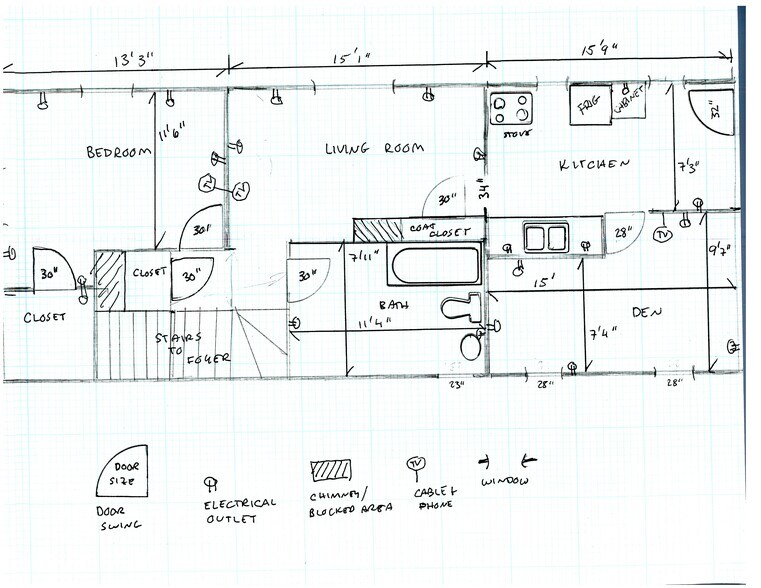 13'3"
15'1"
15'9"
BEDROOM
11'6"
LIVING ROOM
STOVE
FRIG
CABINET
32"
KITCHEN
7'3"
TV
TV
34"
30"
30"
COAT
CLOSET
28"
TV
30"
CLOSET
30"
30"
7'11"
BATH
11'4"
15'
9'7"
DEN
7'4"
CLOSET
STAIRS
TO
FOYER
23"
28"
28"
DOOR
SIZE
DOOR
SWING
ELECTRICAL
OUTLET
CHIMNEY/
BLOCKED AREA
TV
CABLE+
PHONE
WINDOW